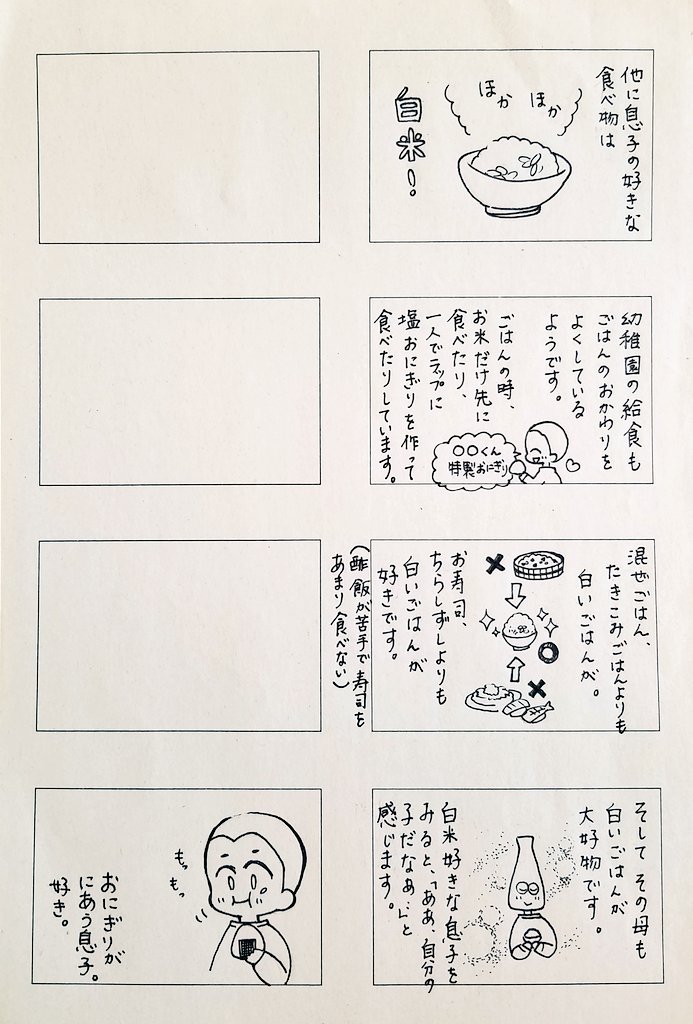 他に息子の好きな
食べ物は
ほか
ほか
白米!
幼稚園の給食も
ごはんのおかわりを
よくしている
ようです。
ごはんの時、
お米だけ先に
食べたり、
一人でラップに
塩おにぎりを作って
食べたりしています。
〇〇くん
特製おにぎり
混ぜごはん、
たきこみごはんよりも
白いごはんが。
お寿司、
ちらしずしよりも
白いごはんが
好きです。
(酢飯が苦手で寿司を
あまり食べない)
そして その母も
白いごはんが
大好物です。
白米好きな息子を
みると、「ああ、自分の
子だなぁ…」と
感じます。
もっ
もっ
おにぎりが
にあう息子。
好き。